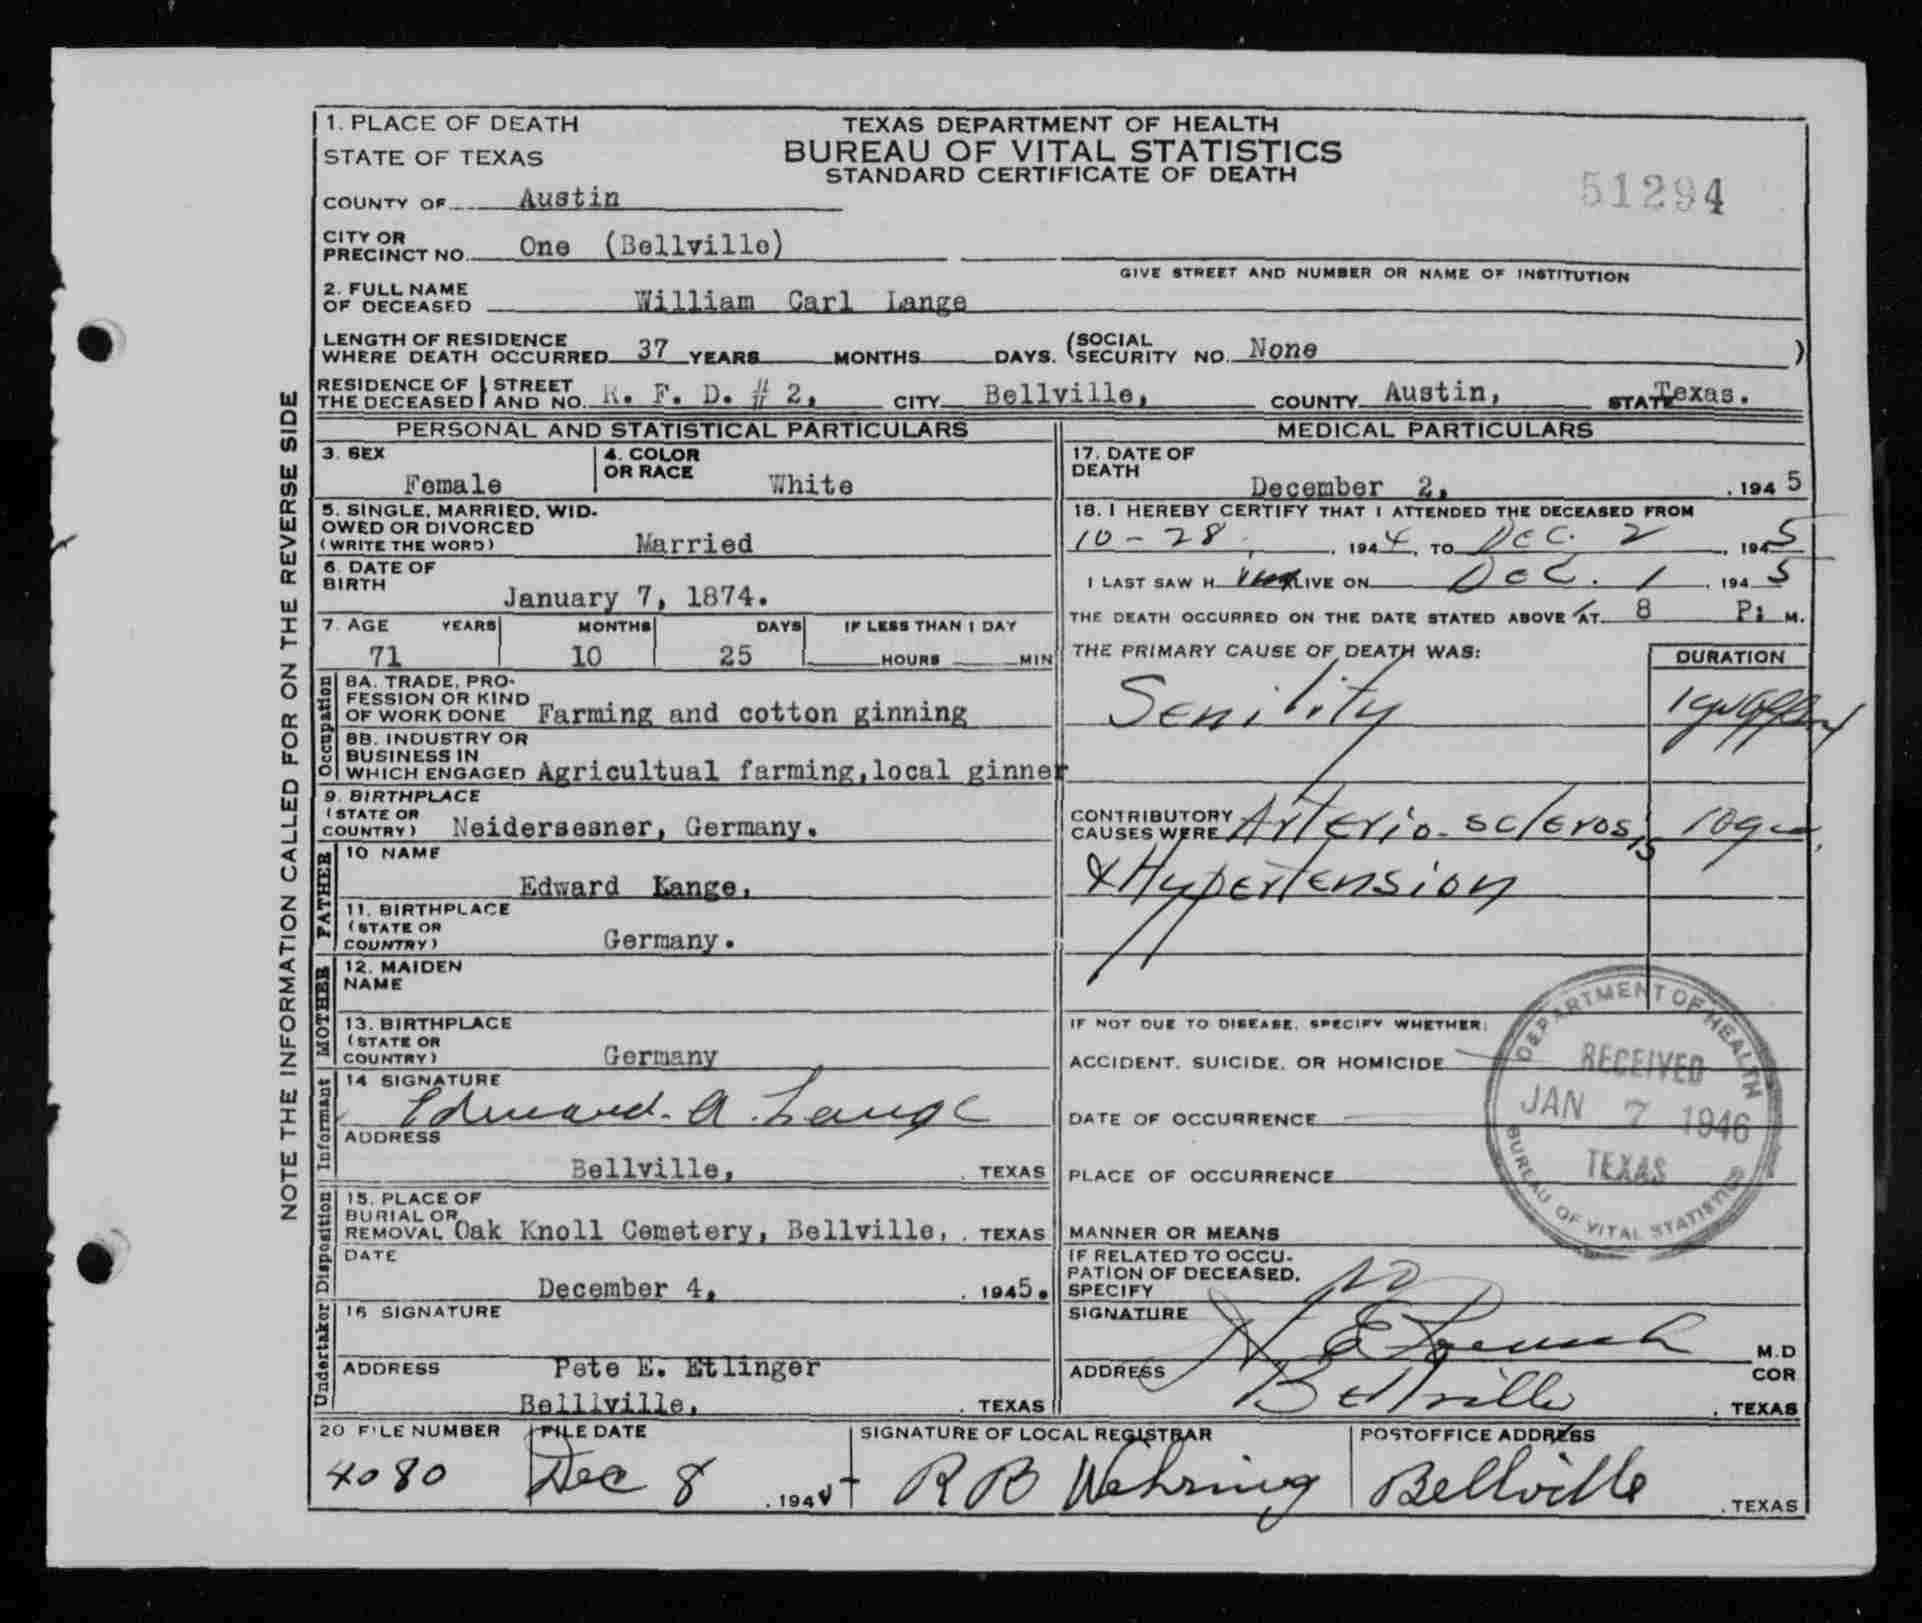 1. PLACE OF DEATH
STATE OF TEXAS
TEXAS DEPARTMENT OF HEALTH
BUREAU OF VITAL STATISTICS
STANDARD CERTIFICATE OF DEATH
51294
COUNTY OF Austin
CITY OR PRECINCT NO. One (Bellville)
GIVE STREET AND NUMBER OR NAME OF INSTITUTION
2. FULL NAME OF DECEASED William Carl Lange
LENGTH OF RESIDENCE WHERE DEATH OCCURRED 37 YEARS MONTHS DAYS. (SOCIAL SECURITY NO. None )
RESIDENCE OF THE DECEASED STREET AND NO. R. F. D. # 2, CITY Bellville, COUNTY Austin, STATE Texas.
NOTE THE INFORMATION CALLED FOR ON THE REVERSE SIDE
PERSONAL AND STATISTICAL PARTICULARS
3. SEX Female
4. COLOR OR RACE White
5. SINGLE, MARRIED, WIDOWED OR DIVORCED (WRITE THE WORD) Married
6. DATE OF BIRTH January 7, 1874.
7. AGE YEARS MONTHS DAYS IF LESS THAN 1 DAY
71 10 25 HOURS MIN
Occupation
8A. TRADE, PROFESSION OR KIND OF WORK DONE Farming and cotton ginning
8B. INDUSTRY OR BUSINESS IN WHICH ENGAGED Agricultual farming,local ginner
9. BIRTHPLACE (STATE OR COUNTRY) Neidersesner, Germany.
FATHER
10 NAME Edward Kange,
11. BIRTHPLACE (STATE OR COUNTRY) Germany.
MOTHER
12. MAIDEN NAME
13. BIRTHPLACE (STATE OR COUNTRY) Germany
Informant
14 SIGNATURE Edward. A. Lange
ADDRESS Bellville, . TEXAS
Disposition
15. PLACE OF BURIAL OR REMOVAL Oak Knoll Cemetery, Bellville, . TEXAS
DATE December 4, . 1945.
Undertaker
16 SIGNATURE
ADDRESS Pete E. Etlinger
Belllville, . TEXAS
MEDICAL PARTICULARS
17. DATE OF DEATH December 2, . 1945
18. I HEREBY CERTIFY THAT I ATTENDED THE DECEASED FROM
10-28, 1944, TO Dec. 2, 1945
I LAST SAW H ALIVE ON Dec. 1, 1945
THE DEATH OCCURRED ON THE DATE STATED ABOVE AT 8 P: M.
THE PRIMARY CAUSE OF DEATH WAS: DURATION
Senility
CONTRIBUTORY CAUSES WERE Arterio-sclerosis
& Hypertension
IF NOT DUE TO DISEASE, SPECIFY WHETHER:
ACCIDENT, SUICIDE, OR HOMICIDE
DATE OF OCCURRENCE
PLACE OF OCCURRENCE
MANNER OR MEANS
DEPARTMENT OF HEALTH
RECEIVED
JAN 7 1946
TEXAS
BUREAU OF VITAL STATISTICS
IF RELATED TO OCCUPATION OF DECEASED, SPECIFY NO
SIGNATURE M.D
ADDRESS COR
Bellville . TEXAS
20 FILE NUMBER FILE DATE SIGNATURE OF LOCAL REGISTRAR POSTOFFICE ADDRESS
4080 Dec 8 . 194 R B Wehring Bellville . TEXAS